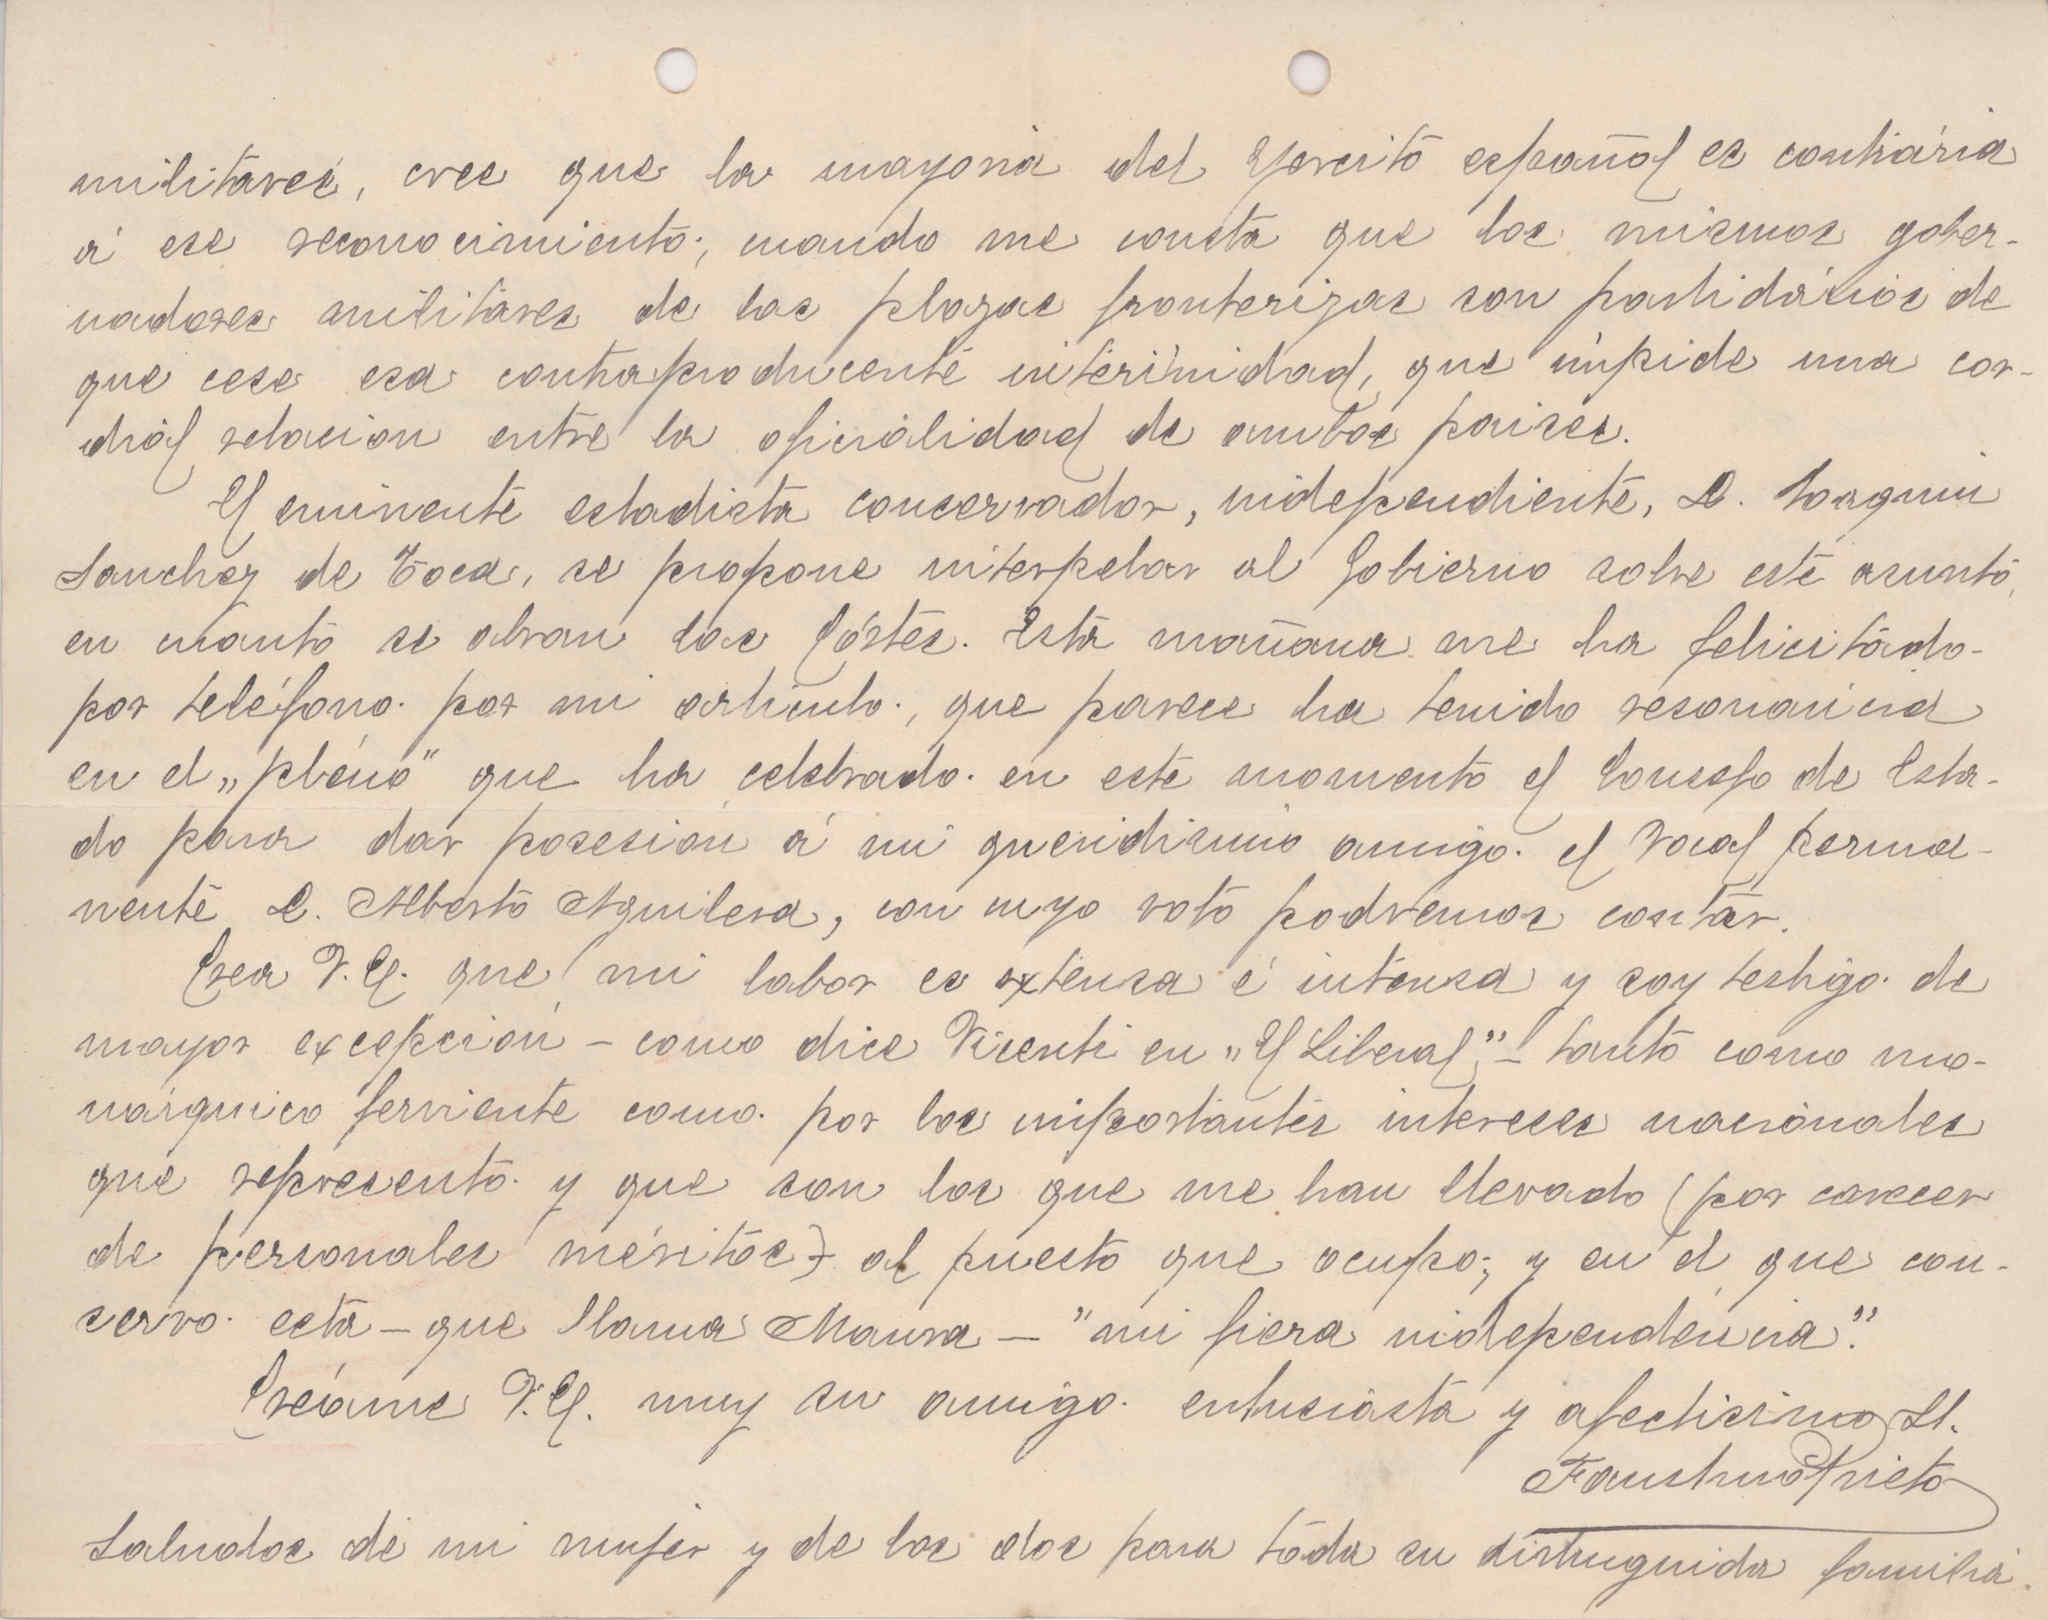 militares, cree que la mayoria del Ejercito español es contrária
á ese reconocimiento; cuando me consta que los mismos gober-
nadores militares de las plazas fronterizas son partidários de
que cese esa contraproducente interinidad, que impide una cor-
dial relacion entre la oficialidad de ambos paises.
El eminente estadista conservador, independiente, D. Joaquin
Sanchez de Toca, se propone interpelar al Gobierno sobre este asunto,
en cuanto se abran las Córtes. Esta mañana me ha felicitado
por teléfono por mi articulo, que parece ha tenido resonancia
en el „pleno" que ha celebrado en este momento el Consejo de Esta-
do para dar posesión á mi queridisimo amigo el Vocal perma-
nente D. Alberto Aguilera, con cuyo voto podremos contar.
Crea V.E. que mi labor es extensa é intensa y soy testigo de
mayor excepción - como dice Vicenti en „El Liberal" - tanto como mo-
nárquico ferviente como por los importantes intereses nacionales
que represento y que son los que me han llevado (por carecer
de personales méritos) al puesto que ocupo; y en el que con-
servo esta - que llama Maura - "mi fiera independencia".
Créame V.E. muy su amigo entusiasta y afectisimo
Faustino Prieto
Saludos de mi mujer y de los dos para toda su distinguida familia.